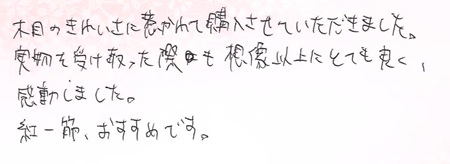 木目のきれいさに惹かれて購入させていただきました。
実物を受け取った際も想像以上にとても良く、
感動しました。
紅一筋、おすすめです。